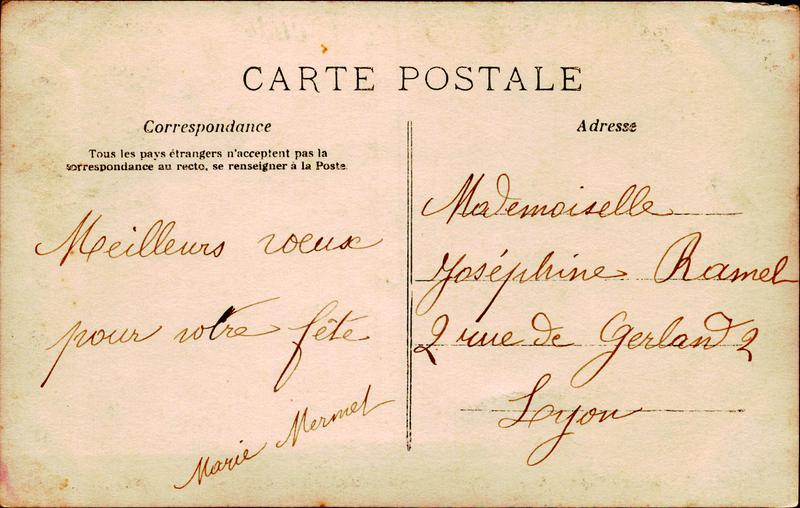 CARTE POSTALE
Correspondance
Tous les pays étrangers n'acceptent pas la
correspondance au recto, se renseigner à la Poste.
Meilleurs vœux
pour votre fête
Marie Mermet
Adresse
Mademoiselle
Joséphine Ramel
2 rue de Gerland 2
Lyon